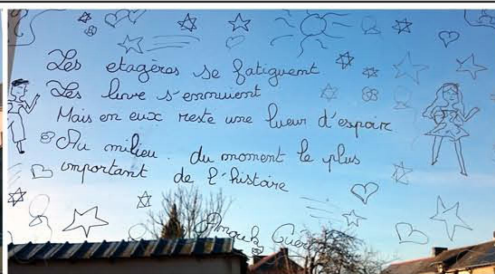 Les etagéras se fatiguent
Les livre s'ennuient
Mais en eux reste une lueur d'espoir
Au milieu du moment le plus
important de l'histoire